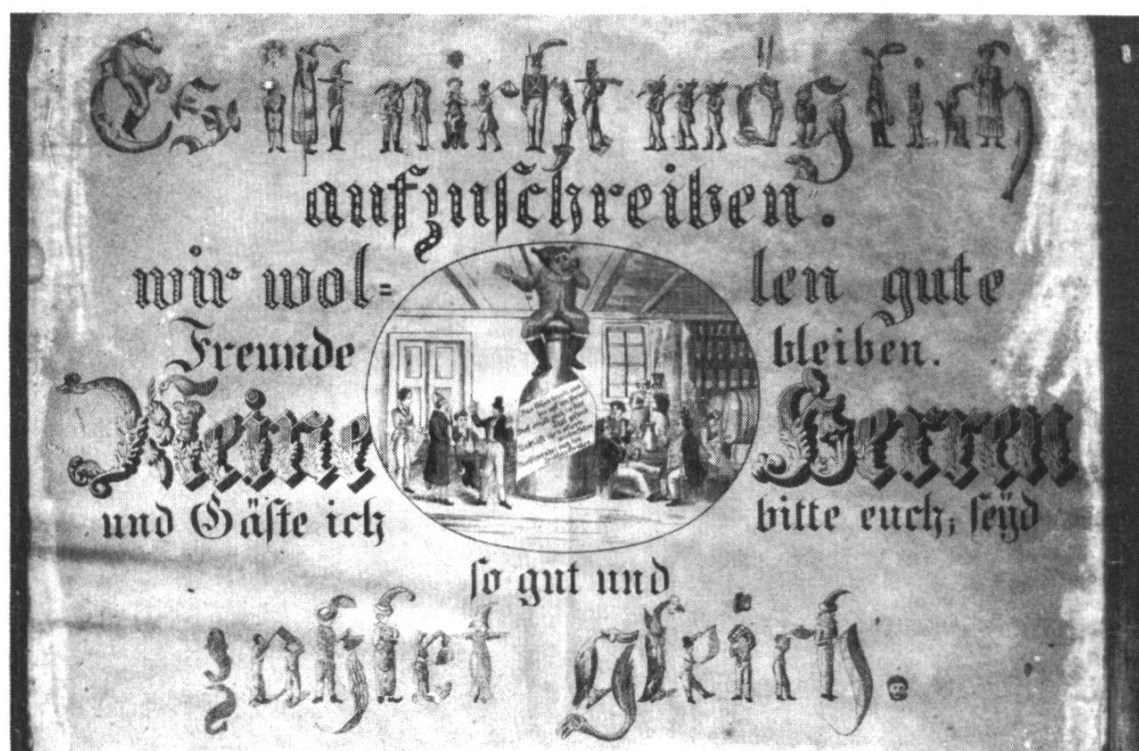 Es ist nicht möglich
aufzuschreiben.
wir wol= len gute
Freunde bleiben.
Meine Herren
und Gäste ich bitte euch, seÿd
so gut und
zahlet gleich.